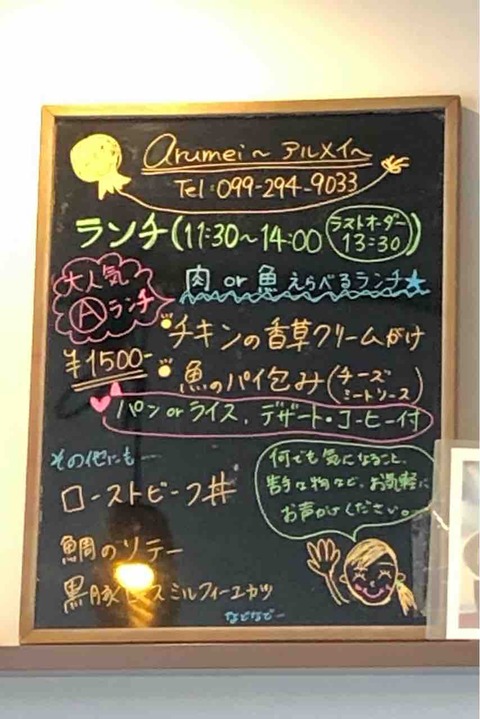 arumei〜アルメイ〜
Tel:099-294-9033
ランチ(11:30〜14:00 ラストオーダー 13:30)
大人気
Ⓐランチ
肉 or 魚 えらべるランチ★
・チキンの香草クリームがけ
¥1500-
・魚のパイ包み(チーズ ミートソース)
パン or ライス、デザート・コーヒー付
その他にも―
ローストビーフ丼
何でも気になること、
苦手な物など、お気軽に
お声がけください。
鯛のソテー
黒豚 ミルフィーユカツ
などなど―